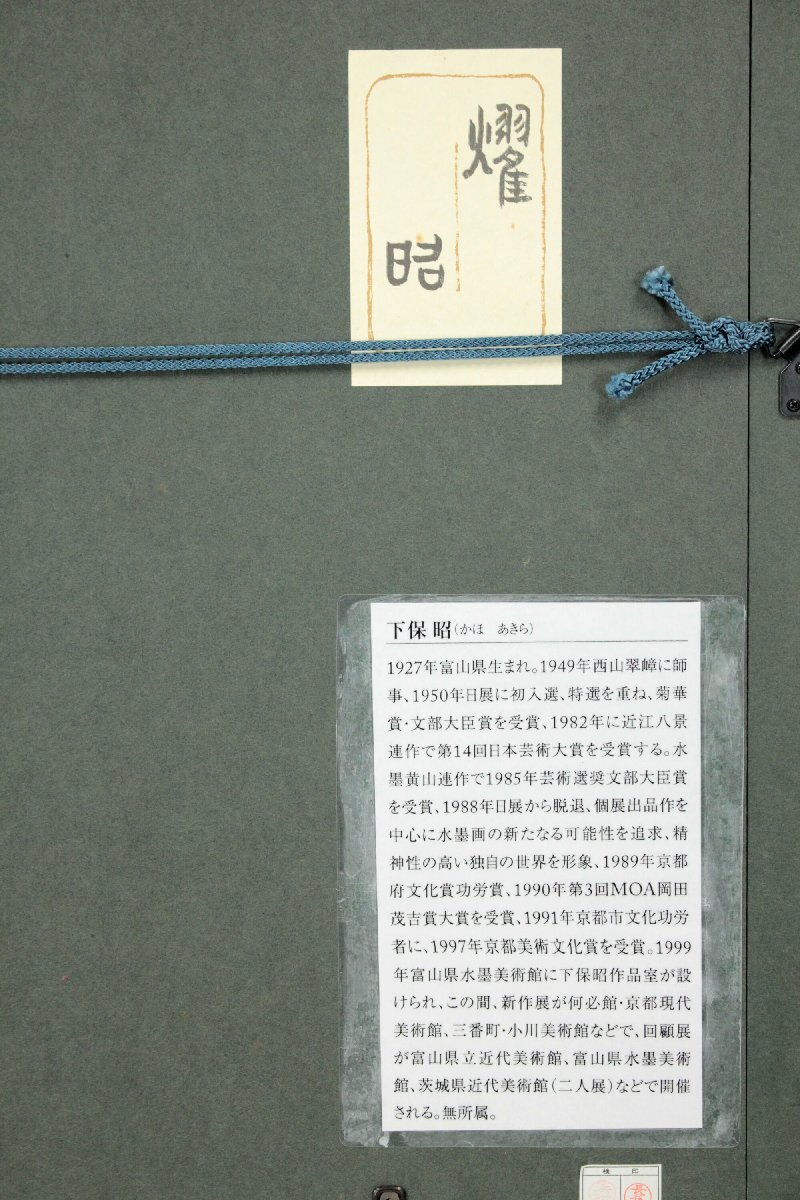 燿
昭
下保 昭(かほ あきら)
1927年富山県生まれ。1949年西山翠嶂に師
事、1950年日展に初入選、特選を重ね、菊華
賞・文部大臣賞を受賞、1982年に近江八景
連作で第14回日本芸術大賞を受賞する。水
墨黄山連作で1985年芸術選奨文部大臣賞
を受賞、1988年日展から脱退、個展出品作を
中心に水墨画の新たなる可能性を追求、精
神性の高い独自の世界を形象、1989年京都
府文化賞功労賞、1990年第3回MOA岡田
茂吉賞大賞を受賞、1991年京都市文化功労
者に、1997年京都美術文化賞を受賞。1999
年富山県水墨美術館に下保昭作品室が設
けられ、この間、新作展が何必館・京都現代
美術館、三番町・小川美術館などで、回顧展
が富山県立近代美術館、富山県水墨美術
館、茨城県近代美術館(二人展)などで開催
される。無所属。
検 印